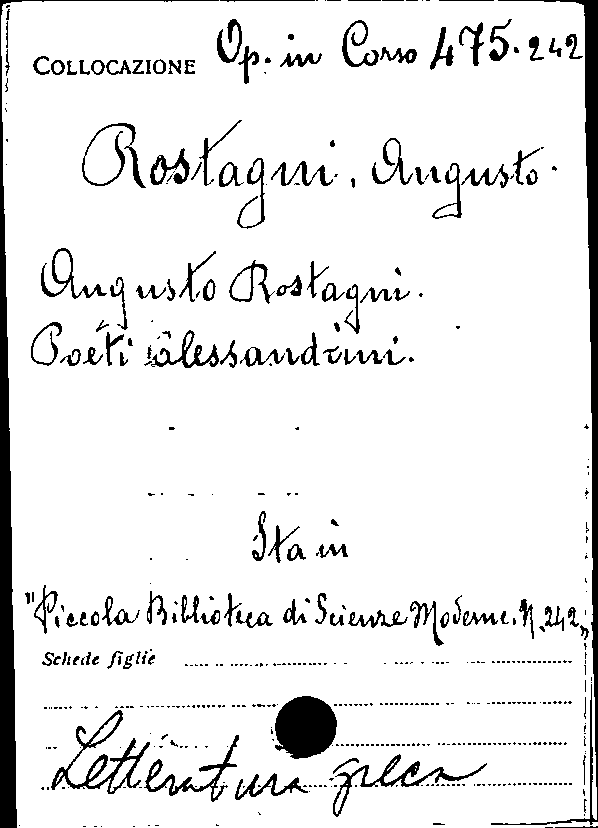 COLLOCAZIONE Op. in Corso 475.242
Rostagni, Augusto.
Augusto Rostagni.
Poeti alessandrini.
Sta in
"Piccola Biblioteca di Scienze Moderne. N. 242„
Schede figlie
Letteratura greca